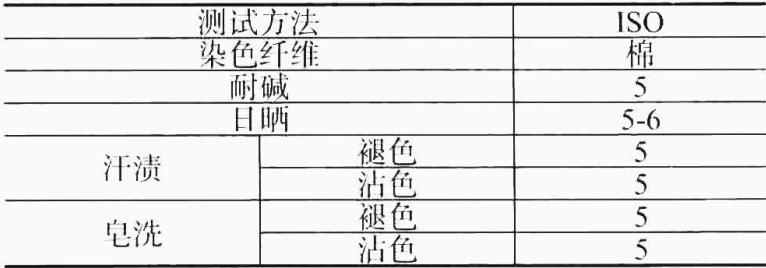 测试方法 ISO
染色纤维 棉
耐碱 5
日晒 5-6
汗渍 褪色 5
沾色 5
皂洗 褪色 5
沾色 5